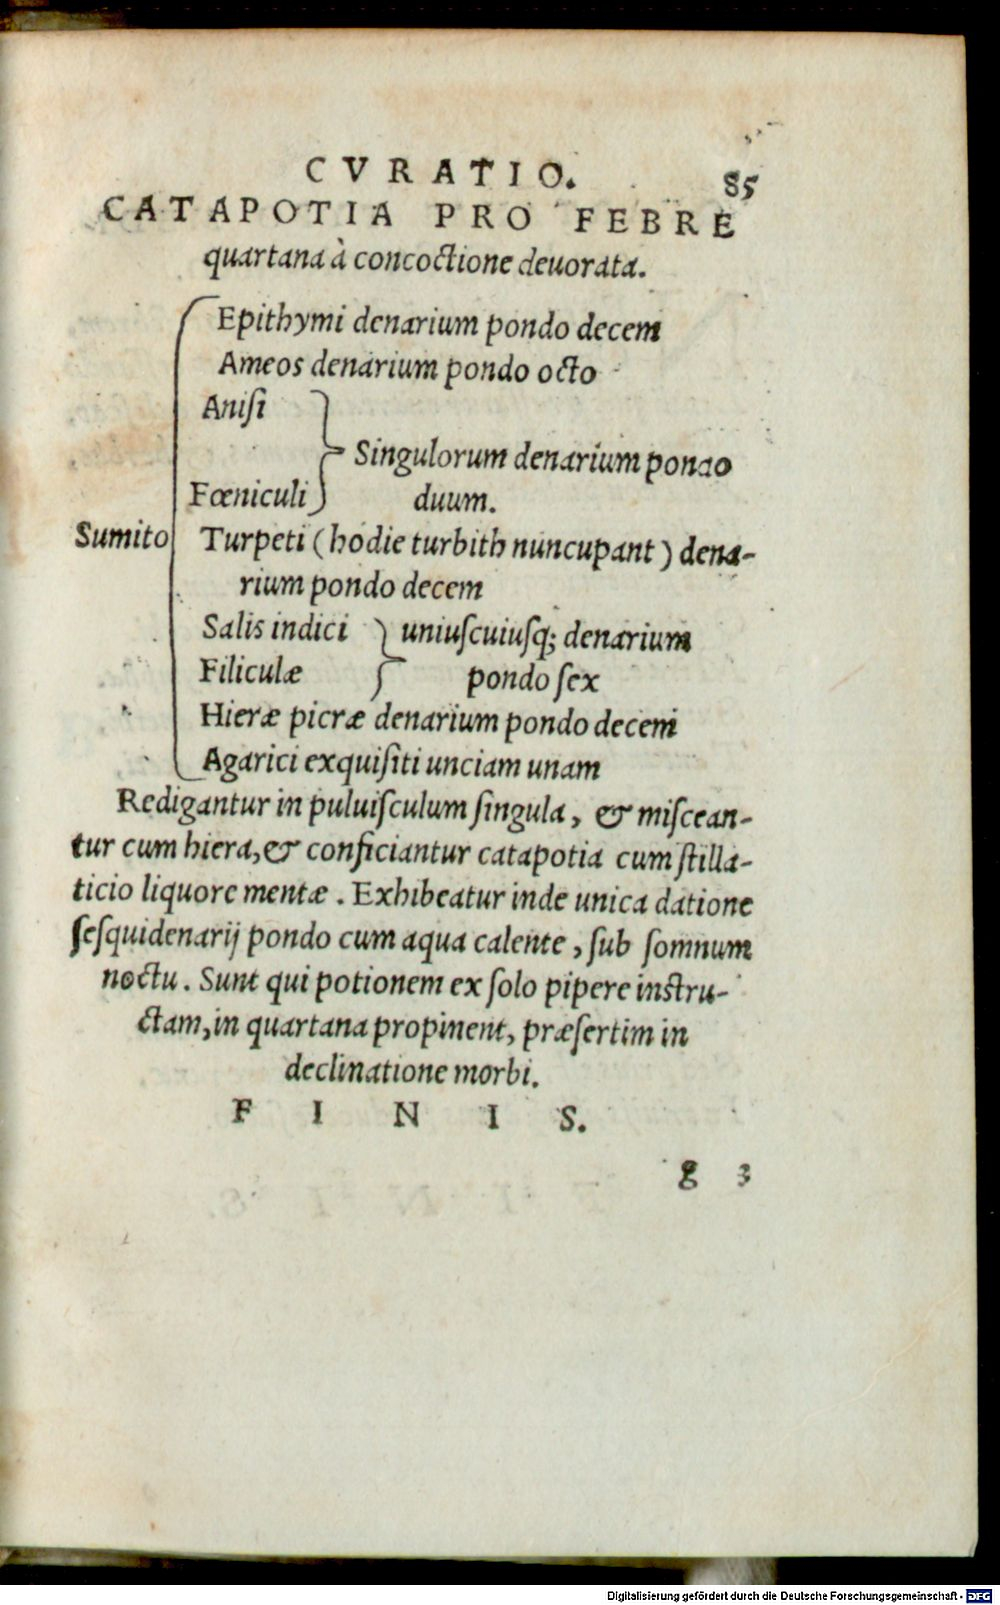 CVRATIO. 85
CATAPOTIA PRO FEBRE
quartana à concoctione deuorata.
Epithymi denarium pondo decem
Ameos denarium pondo octo
Aniſi
Singulorum denarium pondo
Fœniculi duum.
Sumito Turpeti (hodie turbith nuncupant) dena-
rium pondo decem
Salis indici uniuſcuiuſq; denarium
Filiculæ pondo ſex
Hieræ picræ denarium pondo decem
Agarici exquiſiti unciam unam
Redigantur in puluiſculum ſingula, & miſcean-
tur cum hiera, & conficiantur catapotia cum ſtilla-
ticio liquore mentæ. Exhibeatur inde unica datione
ſeſquidenarij pondo cum aqua calente, ſub ſomnum
noctu. Sunt qui potionem ex ſolo pipere instru-
ctam, in quartana propinent, præſertim in
declinatione morbi.
F I N I S.
g 3
Digitalisierung gefördert durch die Deutsche Forschungsgemeinschaft - DFG